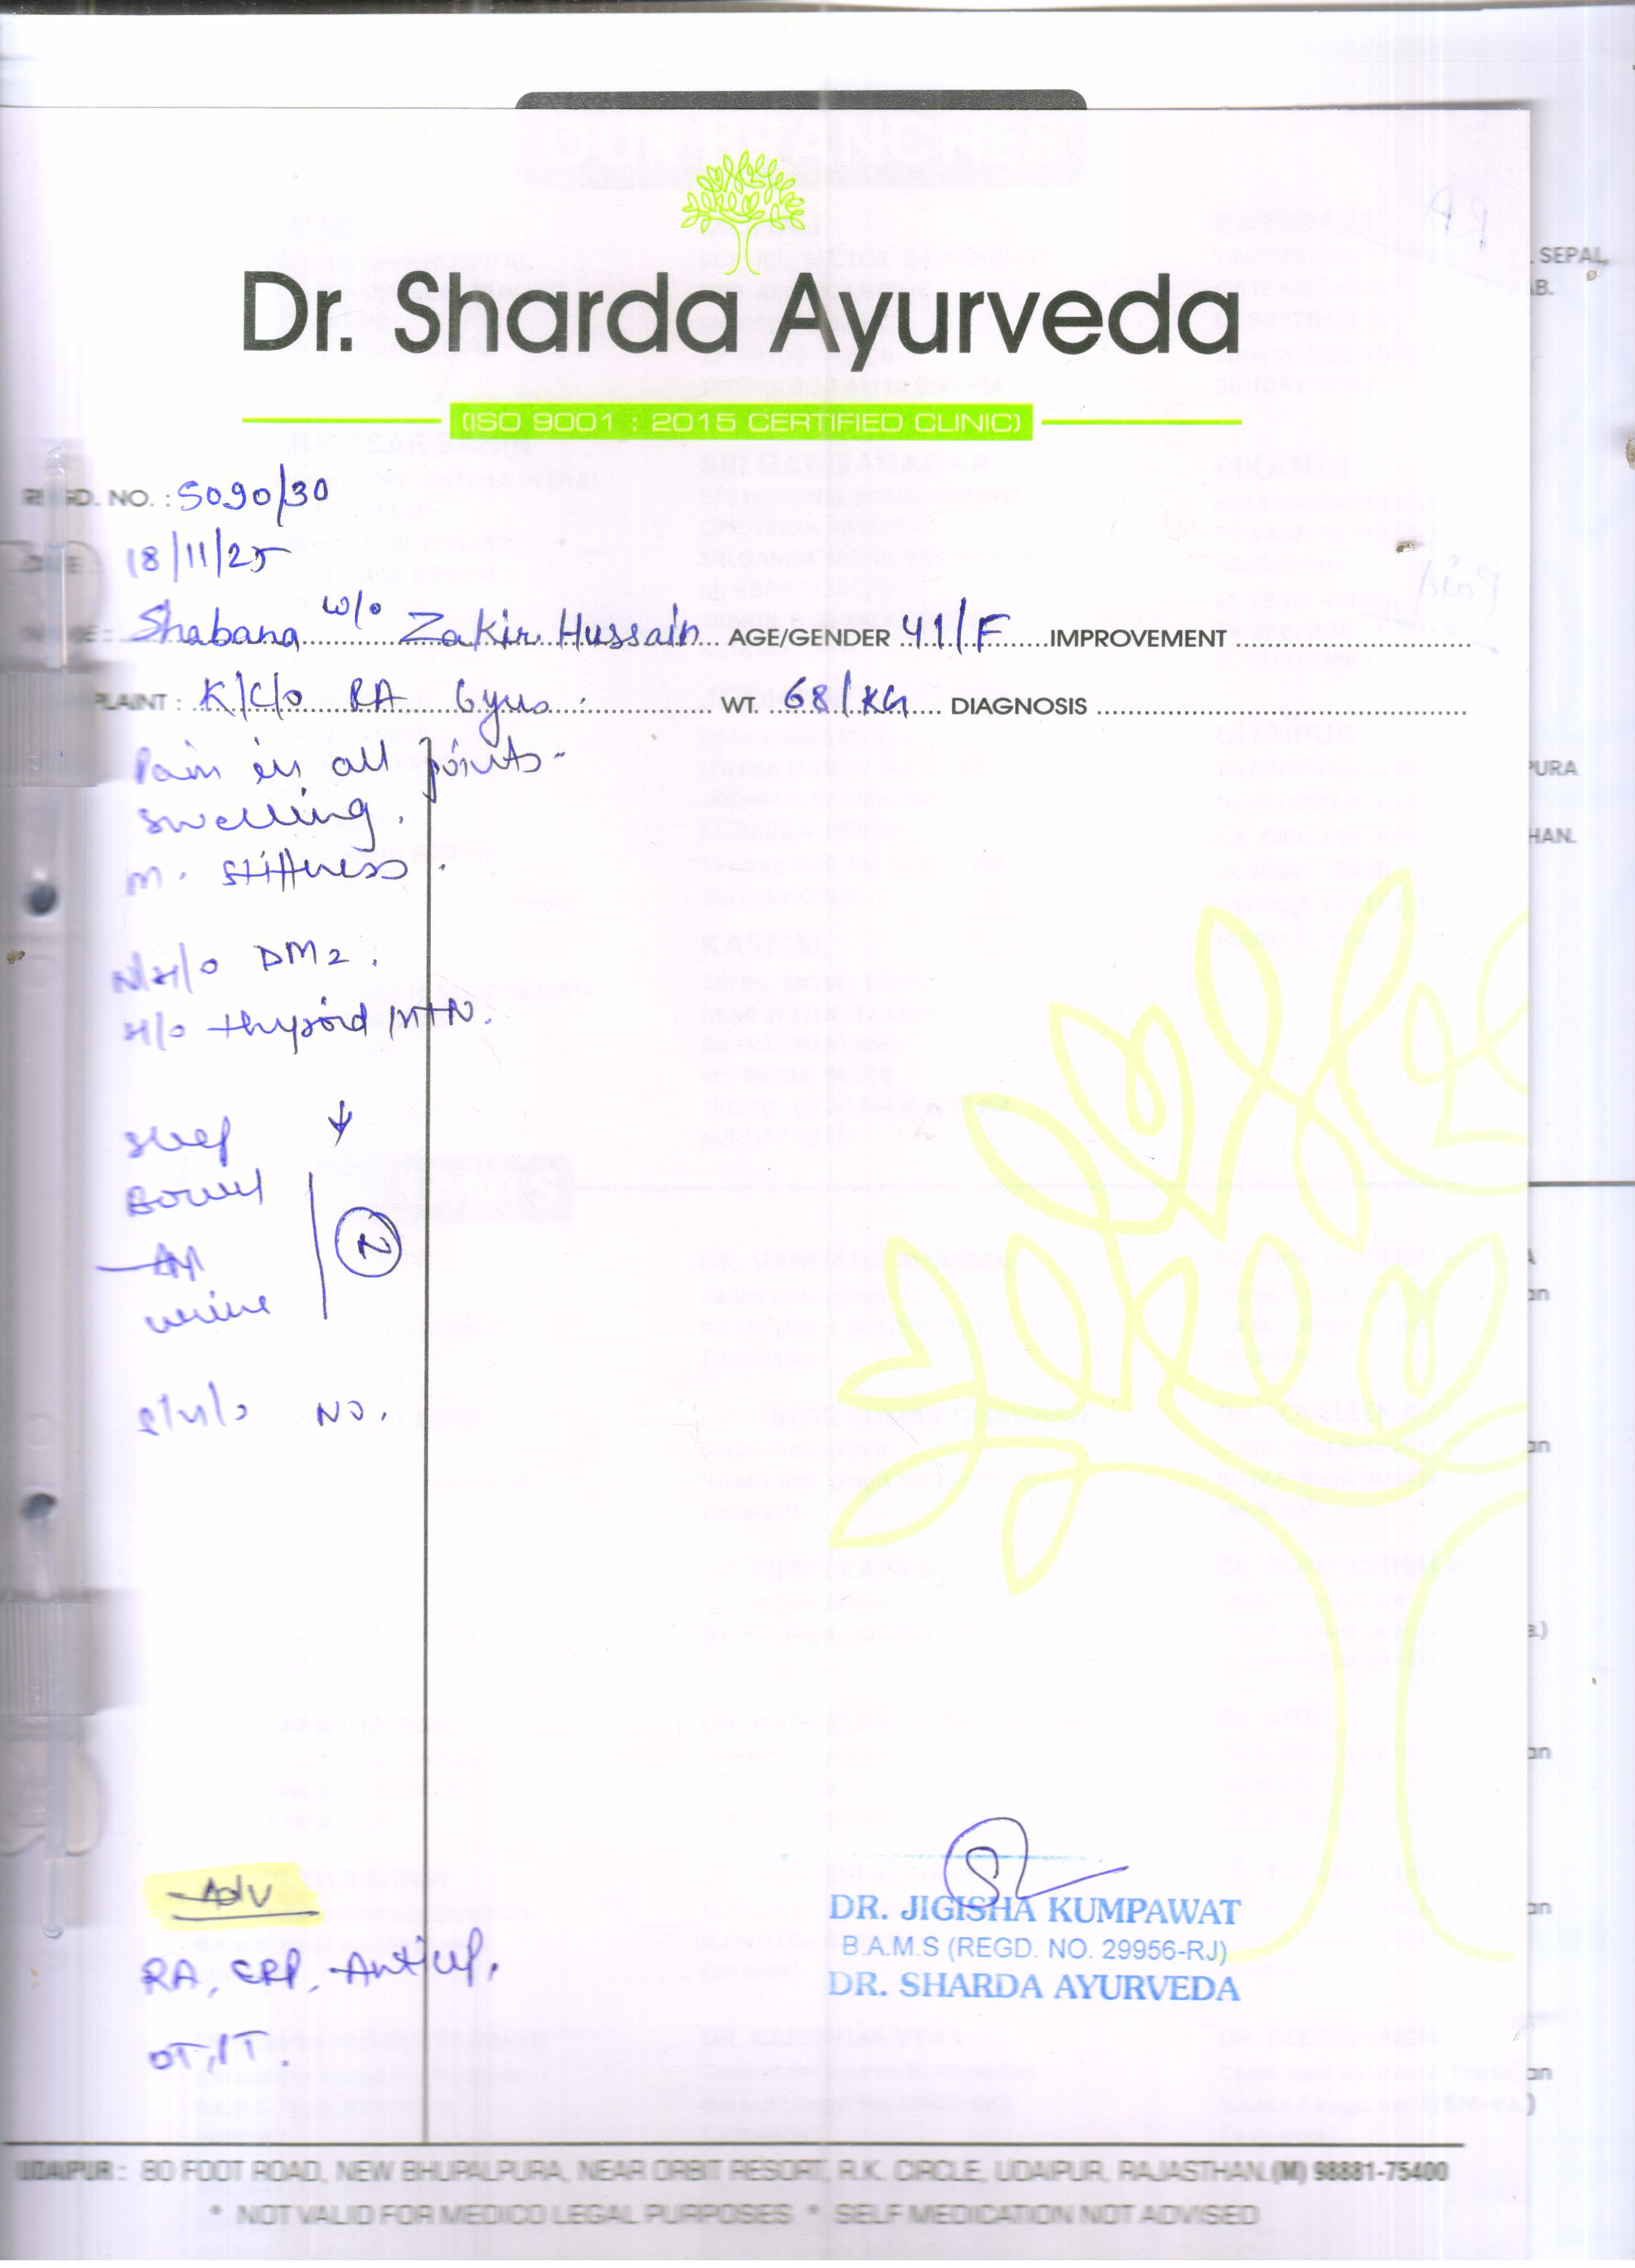 Dr. Sharda Ayurveda
(ISO 9001 : 2015 CERTIFIED CLINIC)
REGD. NO. : 5090/30
DATE : 18/11/25
NAME : Shabana w/o Zakir Hussain AGE/GENDER 41/F IMPROVEMENT
PLAINT : K/C/o RA 6yrs. WT. 68/KG DIAGNOSIS
Pain in all joints.
Swelling.
M. Stiffness.
N/H/o DM2.
H/o thyroid, HTN.
Sleep ↓
Bowel
App
urine
N
S/H/o NO.
Adv
RA, CRP, Anticcp,
OT, PT.
DR. JIGISHA KUMPAWAT
B.A.M.S (REGD. NO. 29956-RJ)
DR. SHARDA AYURVEDA
UDAIPUR : 80 FOOT ROAD, NEW BHUPALPURA, NEAR ORBIT RESORT, R.K. CIRCLE, UDAIPUR, RAJASTHAN.(M) 98881-75400
* NOT VALID FOR MEDICO LEGAL PURPOSES * SELF MEDICATION NOT ADVISED
SEPAL,
AB.
PURA
HAN.